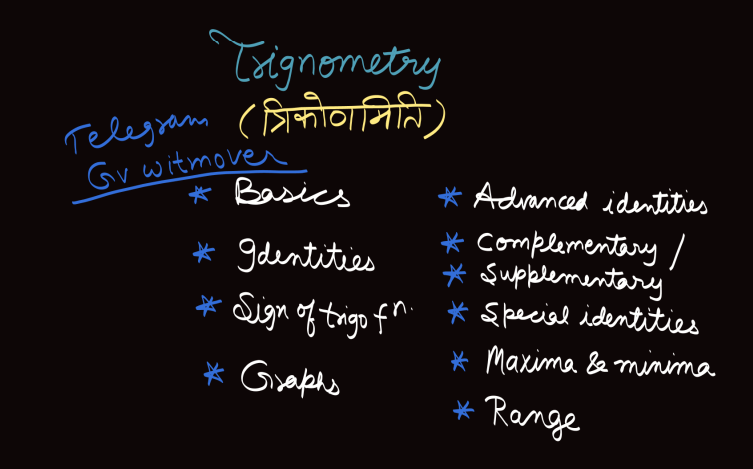 Trignometry
(त्रिकोणमिति)
Telegram
Gv witmover
* Basics
* Identities
* Sign of trigo fn.
* Graphs
* Advanced identities
* Complementary /
* Supplementary
* Special identities
* Maxima & minima
* Range